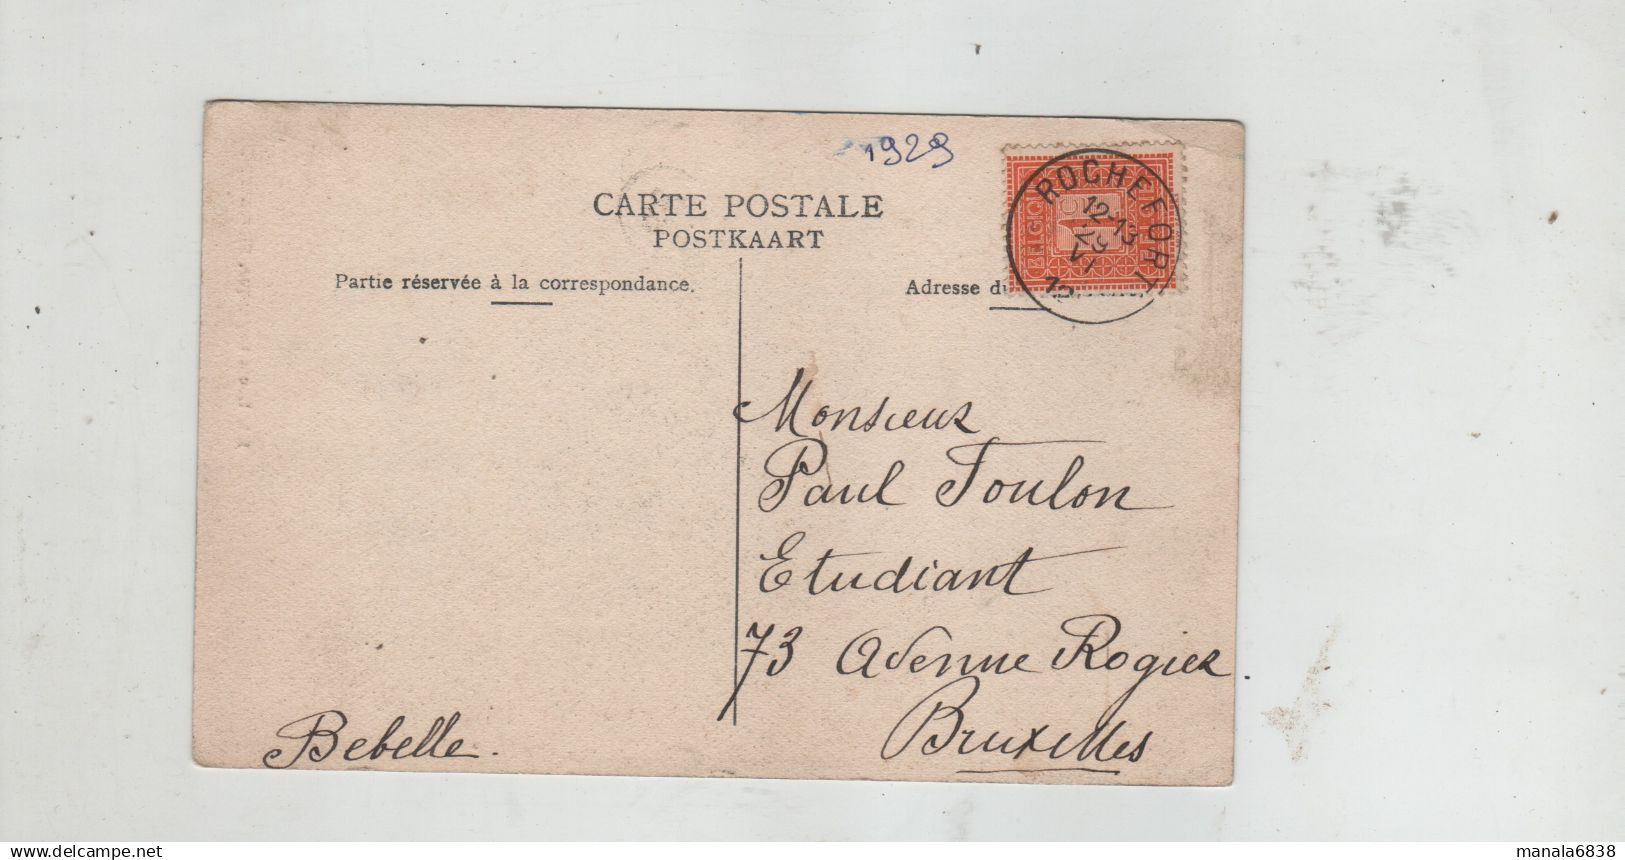 1929
CARTE POSTALE
POSTKAART
Partie réservée à la correspondance.
Adresse du
ROCHEFORT
12-13
29
VI
12
BELGIQ
Monsieur
Paul Toulon
Etudiant
73 Avenue Rogier
Bruxelles
Bebelle.
delcampe.net
manala6838